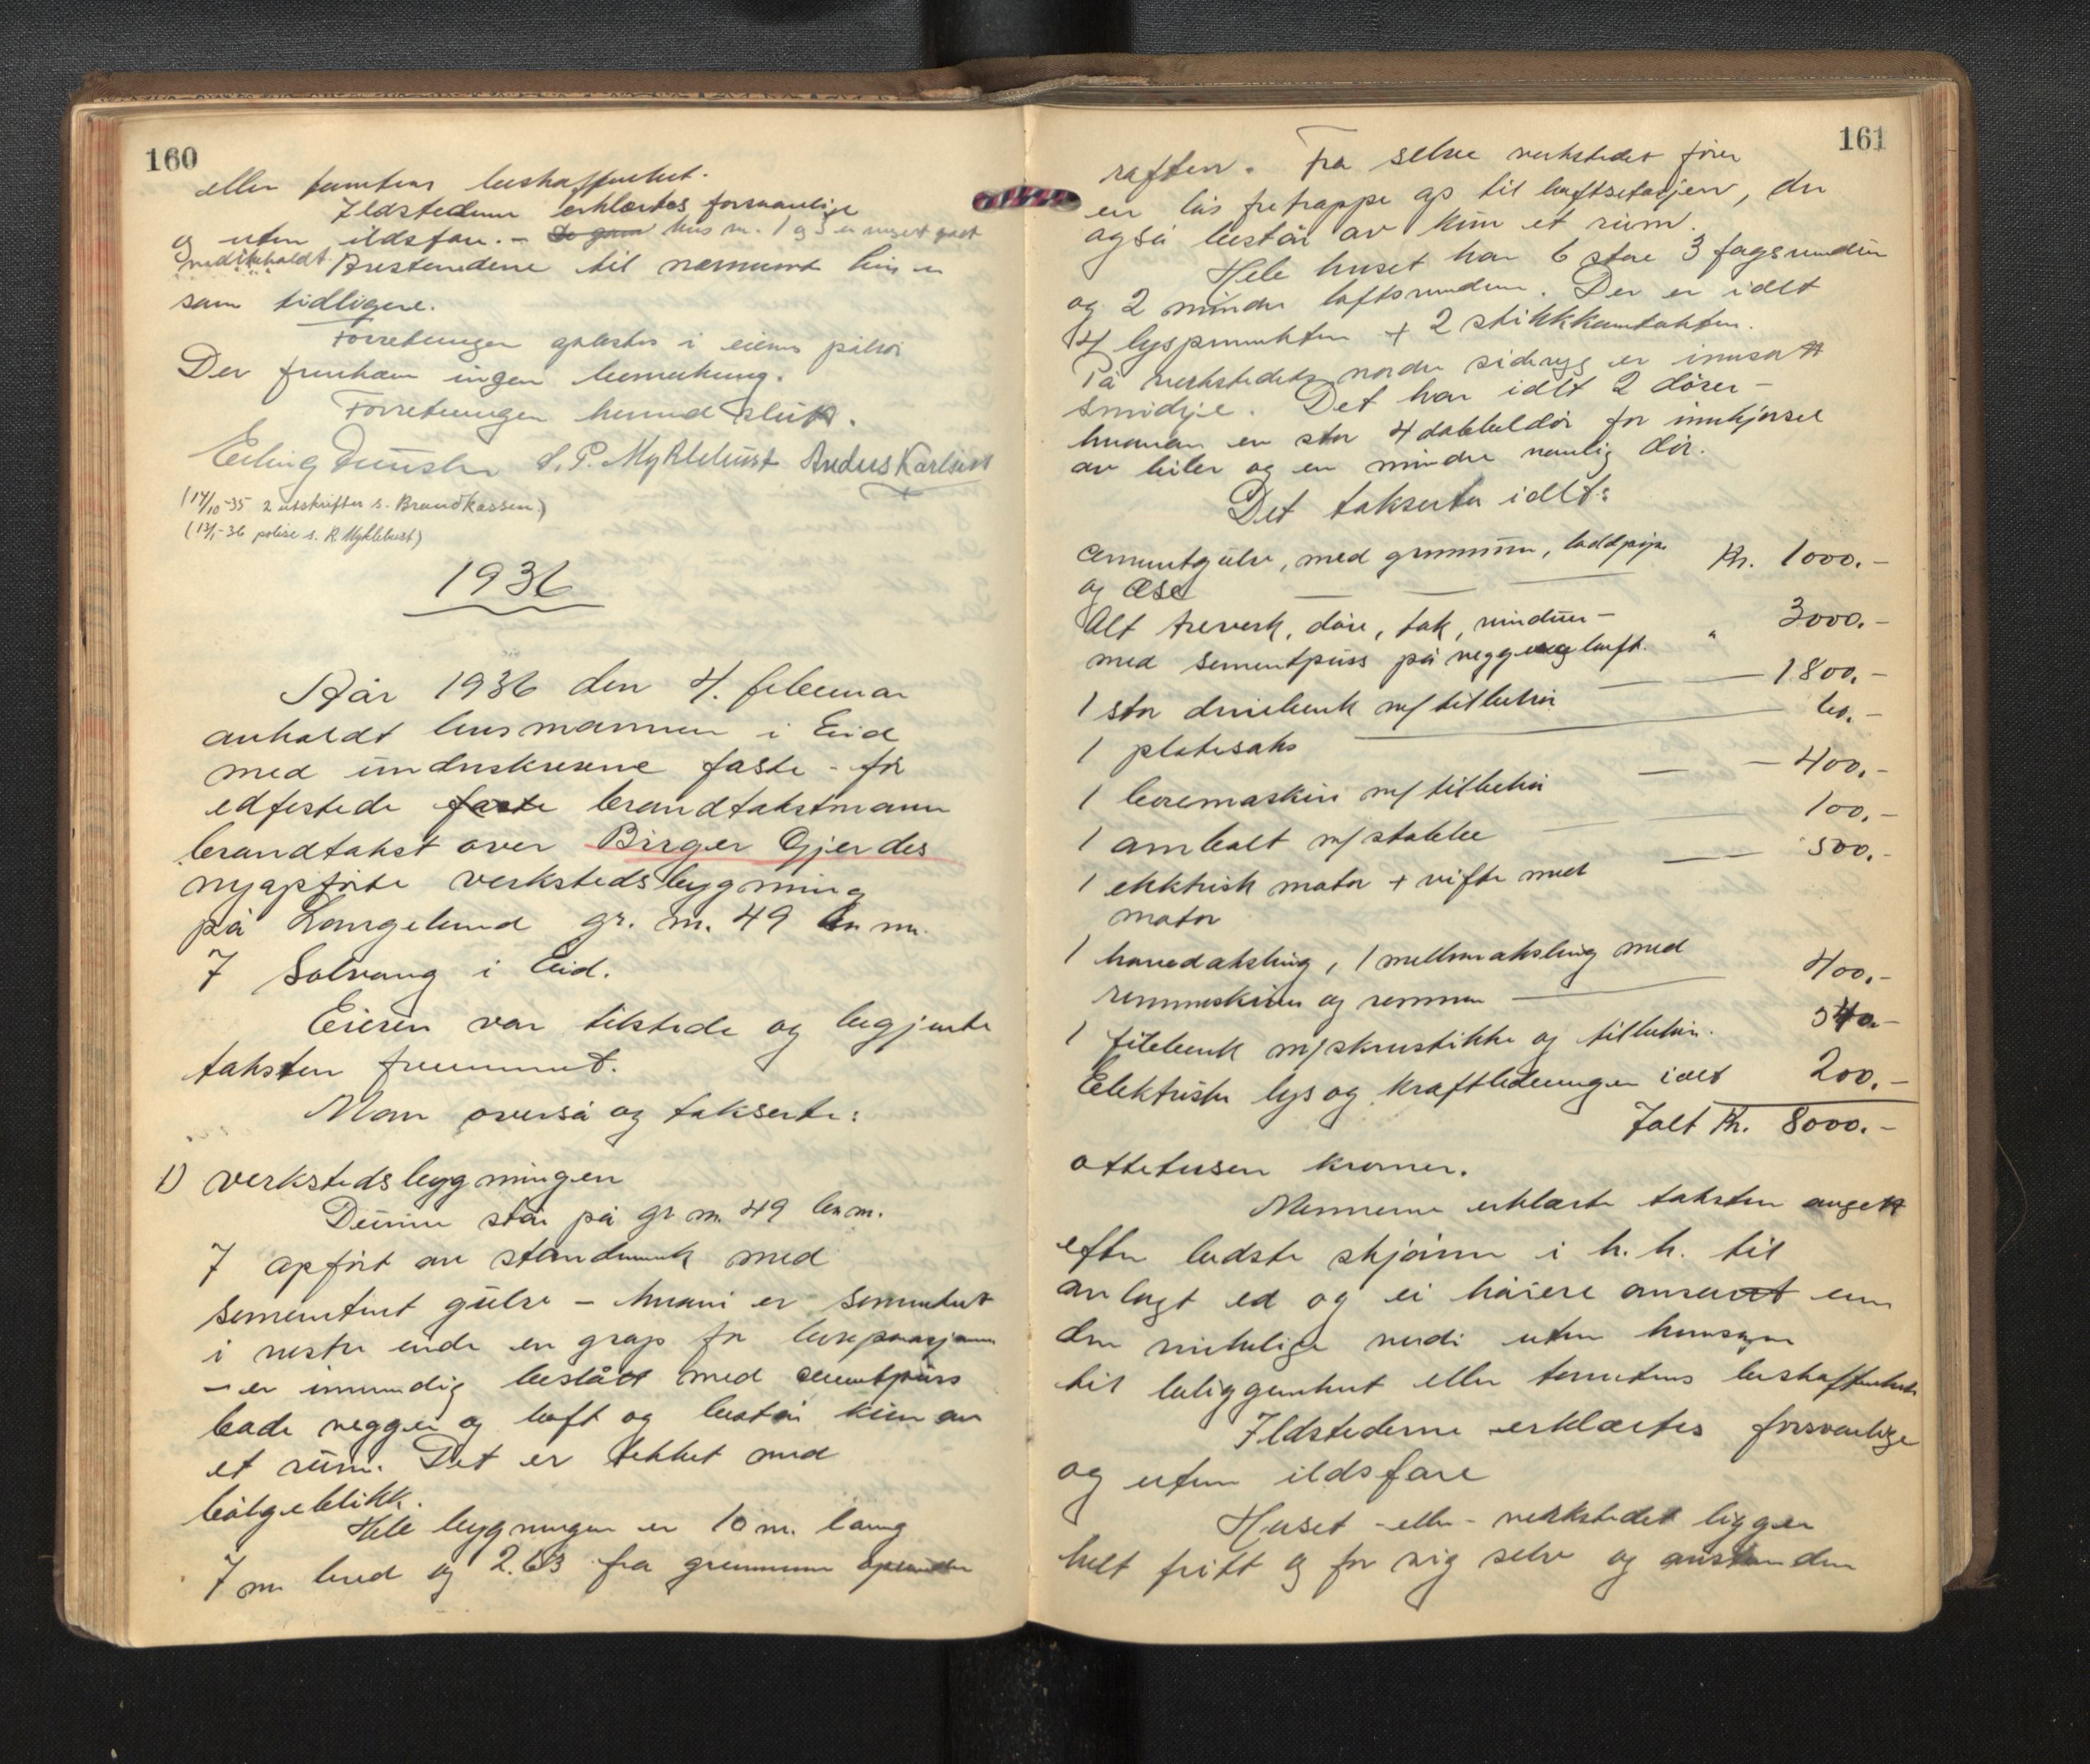 160
eller tomtens beskaffenhet.
Ildstederne erklærtes forsvarlige
og uten ildsfare. - De gam hus nr. 1 og 3 er meget godt
vedlikeholdt. Avstandene til nærmeste hus er
som tidligere.
Forretningen oplestes i eierens påhør
Der fremkom ingen bemerkning.
Forretningen hermed slutt.
Erling S. P. Myklebust Anders Karlsen
(14/10-35 2 utskrifter s. Brandkassen)
(13/1-36 polise s. R. Myklebust)
1936
År 1936 den 4. februar
avholdt lensmannen i Eid
med undnskrevne faste - for
edfestede faste brandtakstmenn
brandtakst over Birger Gjerdes
nyopførte verkstedsbygning
på Langelund gr. nr. 49 bn nr.
7 Solvang i Eid.
Eieren var tilstede og begjærte
taksten fremmet.
Man overså og takserte:
1) verkstedsbygningen
Denne står på gr nr. 49 bn nr.
7 opført av standverk med
sementert gulv - hvori er sementert
i vestre ende en grop for bilreparasjoner
- er innvendig beslått med cementpuss
både vegger og loft og består kun av
et rum. Det er tekket med
bølgeblikk.
Hele bygningen er 10 m. lang
7 m bred og 2.63 fra grunnmur
161
raften. Fra selve verkstedet fører
en løs fretrappe op til loftsetasjen, der
også består av kun et rum.
Hele huset har 6 store 3 fagsvinduer
og 2 mindre loftsvinduer. Der er idlt
4 lyspunkter + 2 stikkkontakter.
På verkstedets nordre sidevegg er innsatt
smidje. Det har idlt 2 dører -
hvorav en stor 4 dobbeldør for innkjørsel
av biler og en mindre vanlig dør.
Det takserter idlt:
Cementgulv, med grunnmur, loddpipe
og æse Kr. 1000.-
Alt treverk, dører, tak, vinduer -
med sementpuss på vegger og loft. " 3000.-
1 stor dreiebenk m/ tilbehør 1800.-
1 platesaks 60.-
1 boremaskin m/ tilbehør 400.-
1 ambolt m/ stabbe 100.-
1 elektrisk motor + vifte med
motor 500.-
1 hovedaksling, 1 mellomaksling med
remmeskiver og remmer 400.-
1 filebenk m/skrustikke og tilbehør. 540.-
Elektriske lys og kraftledninger ialt 200.-
Ialt Kr. 8000.-
ottetusen kroner.
Mennene erklærte taksten avgett
efter bedste skjønn i h. h. til
avlagt ed og ei høiere ansvatt enn
den virkelige verdi uten hensyn
til beliggenhet eller tomtens beskaffenhet
Ildstederne erklærtes forsvarlige
og uten ildsfare
Huset - eller - verkstedet ligger
helt fritt og for sig selv og avstanden